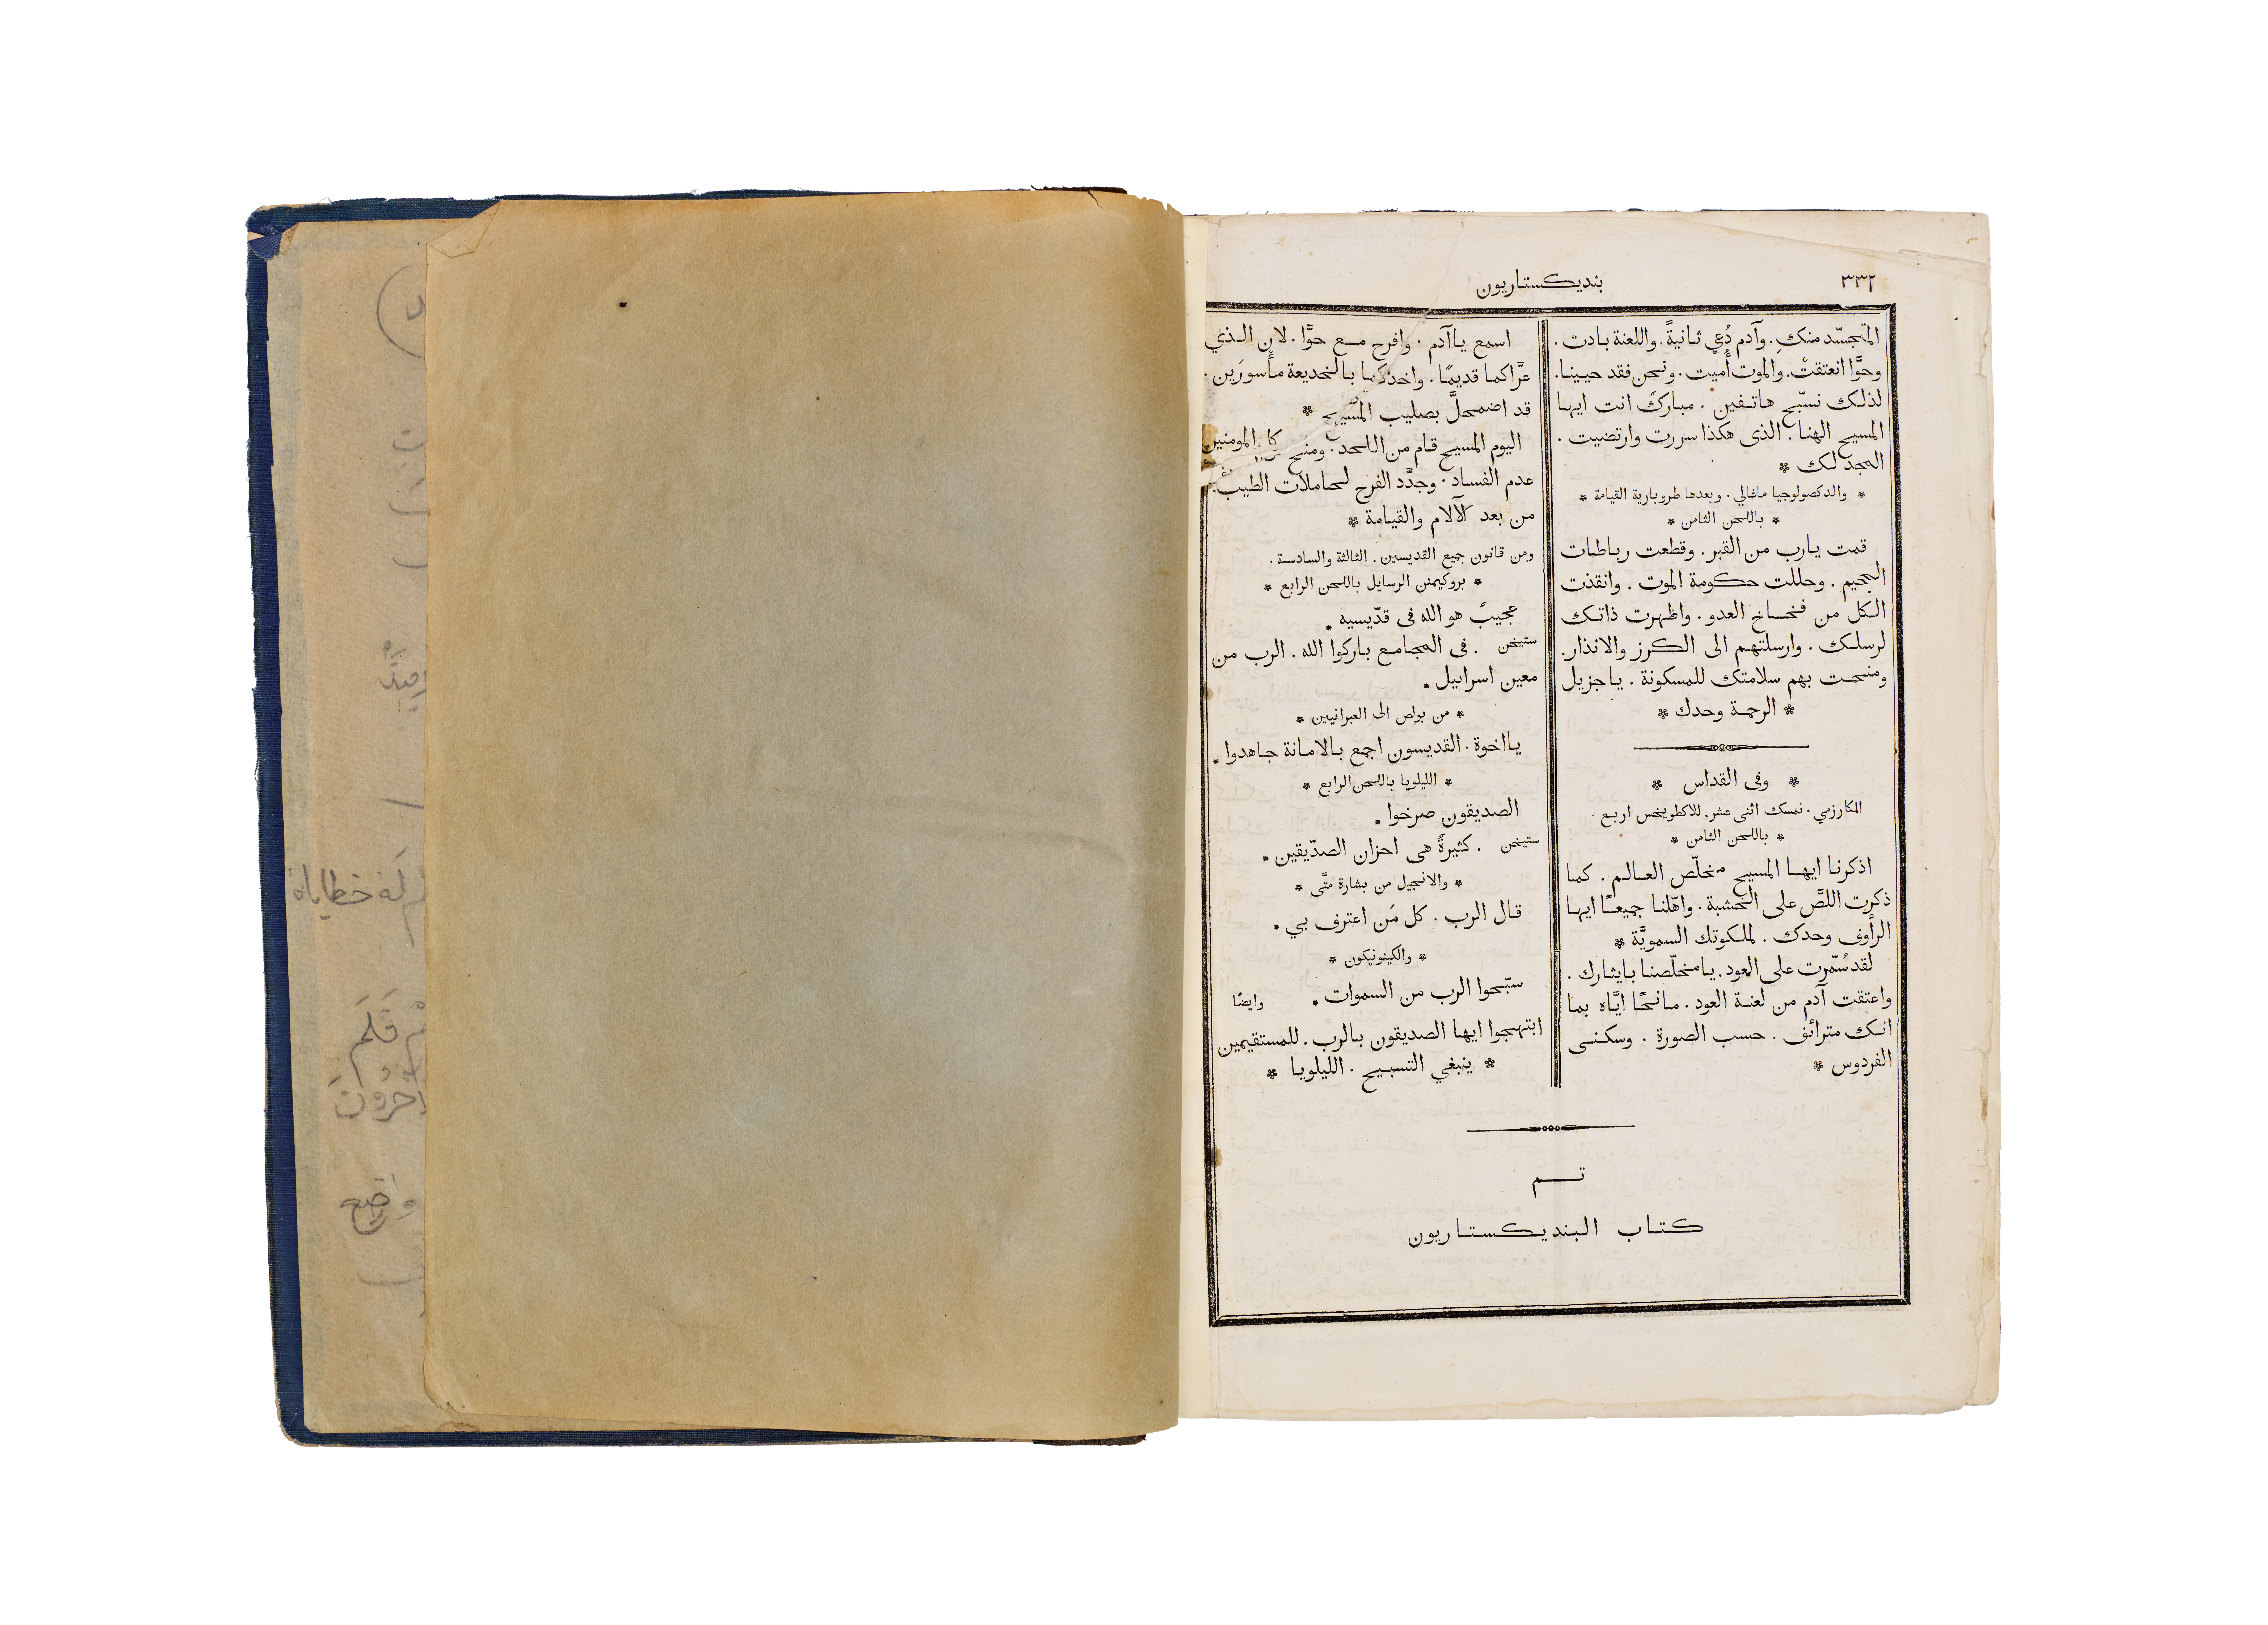 ٣٣٢
بنديكستاريون
المتجسّد منكِ. وآدم دُعي ثانيةً. واللعنة بادت.
وحوَّا انعتقتْ. والموت أُميت. ونحن فقد حيينا.
لذلك نسبّح هاتفين. مباركٌ انت ايها
المسيح الهنا. الذى هكذا سررت وارتضيت.
المجد لك *
* والدكصولوجيا ماغالي. وبعدها طروبارية القيامة *
* باللحن الثامن *
قمت يارب من القبر. وقطعت رباطات
الجحيم. وحللت حكومة الموت. وانقذت
الكل من فخاخ العدو. واظهرت ذاتك
لرسلك. وارسلتهم الى الكرز والانذار.
ومنحت بهم سلامتك للمسكونة. ياجزيل
* الرحمة وحدك *
* وفى القداس *
المكارزمي. نمسك اثنى عشر. للاكطويخس اربع.
* باللحن الثامن *
اذكرنا ايها المسيح مخلّص العالم. كما
ذكرت اللصَّ على الخشبة. واهّلنا جميعًا ايها
الرأوف وحدك. لملكوتك السمويَّة *
لقد سُمّرت على العود. يامخلّصنا بايثارك.
واعتقت آدم من لعنة العود. مانحًا ايَّاه بما
انك مترائف. حسب الصورة. وسكنى
الفردوس *
اسمع ياآدم. وافرح مع حوَّا. لان الذي
عرَّاكما قديمًا. واخذكما بالخديعة مأسورَين.
قد اضمحلَّ بصليب المسيح *
اليوم المسيح قام من اللحد. ومنح كل المومنين
عدم الفساد. وجدَّد الفرح لحاملات الطيب.
من بعد الآلام والقيامة *
ومن قانون جميع القديسين. الثالثة والسادسة.
* بروكيمنن الرسايل باللحن الرابع *
عجيبٌ هو الله فى قدّيسيه.
ستيخن. فى المجامع باركوا الله. الرب من
معين اسراييل.
* من بولص الى العبرانيين *
يااخوة. القديسون اجمع بالامانة جاهدوا.
* الليلويا باللحن الرابع *
الصديقون صرخوا.
ستيخن. كثيرةٌ هى احزان الصدّيقين.
* والانجيل من بشارة متَّى *
قال الرب. كل مَن اعترف بي.
* والكينونيكون *
سبّحوا الرب من السموات. وايضًا
ابتهجوا ايها الصديقون بالرب. للمستقيمين
* ينبغي التسبيح. الليلويا *
تم
كتاب البنديكستاريون
له خطاياة
فلم
آخرون
واضع